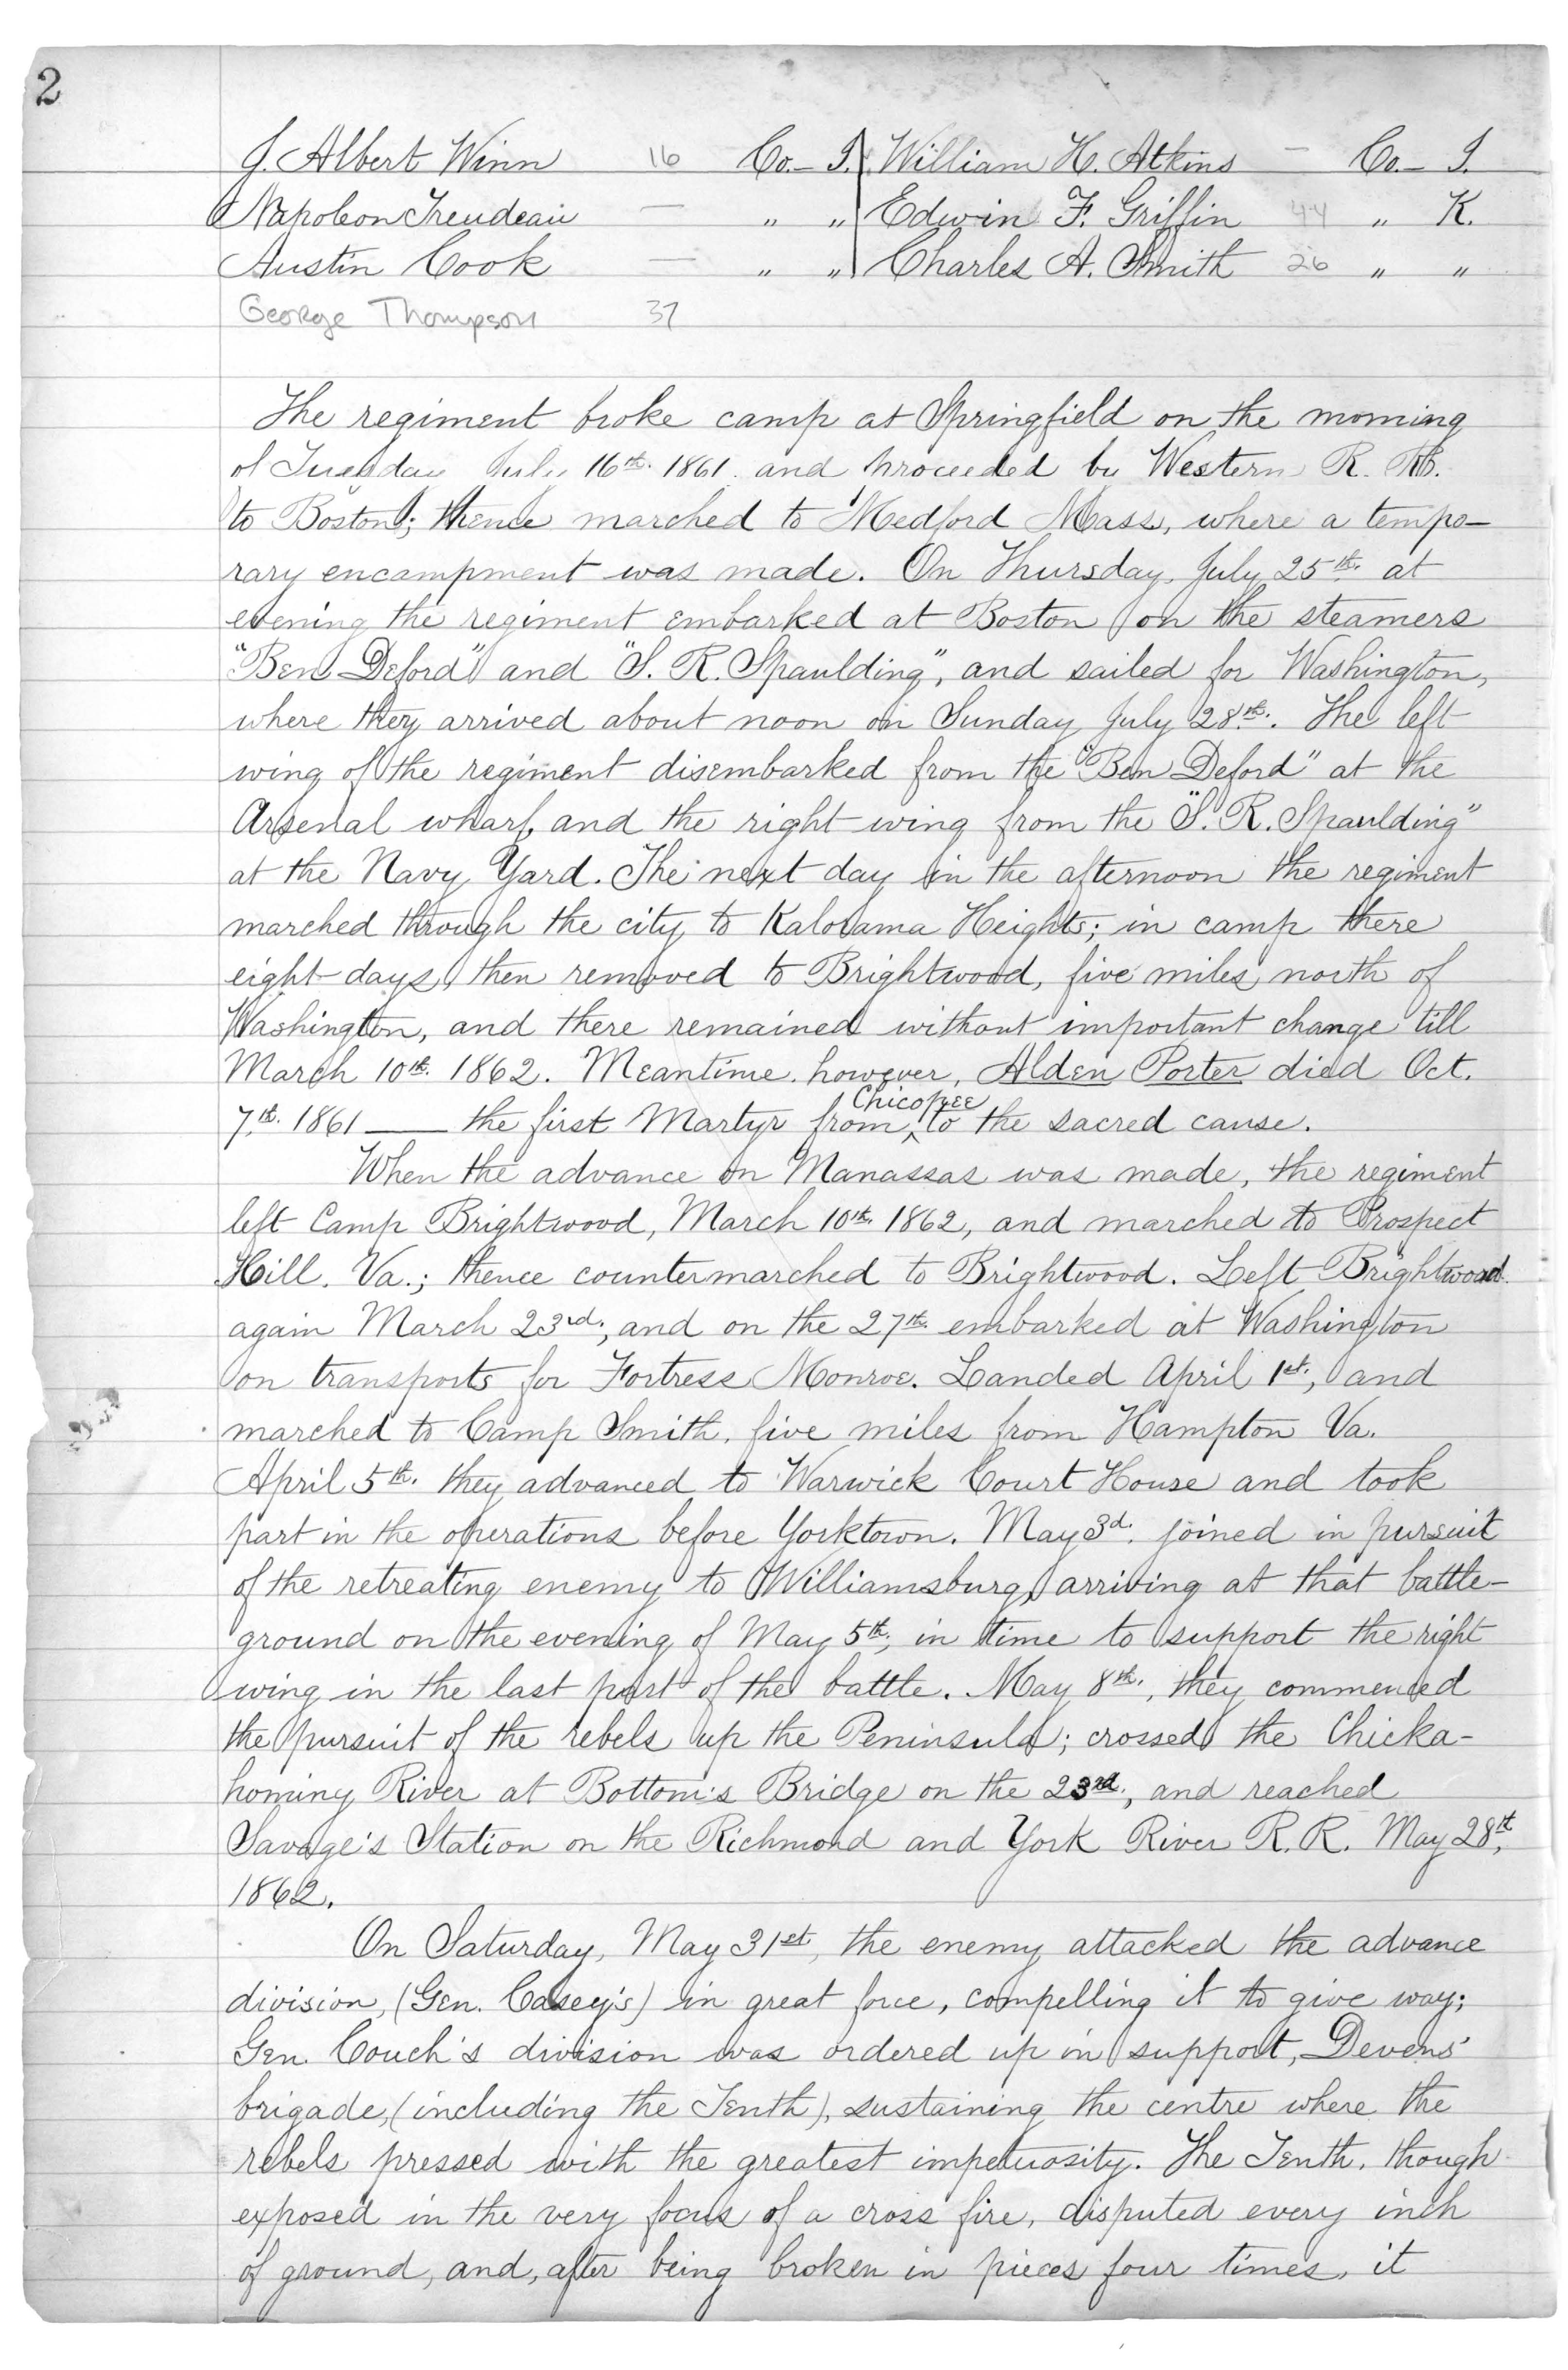 2
J. Albert Winn 16 Co. I. William H. Atkins — Co. I.
Napoleon Trendeau — " " Edwin F. Griffin 44 " K.
Austin Cook — " " Charles A. Smith 26 " "
George Thompson 37
The regiment broke camp at Springfield on the morning
of Tuesday July 16th. 1861. and proceeded by Western R. R.
to Boston; thence marched to Medford Mass, where a tempo-
rary encampment was made. On Thursday, July 25th. at
evening the regiment embarked at Boston on the steamers
"Ben Deford" and "S. R. Spaulding", and sailed for Washington,
where they arrived about noon on Sunday July 28th.. The left
wing of the regiment disembarked from the "Ben Deford" at the
Arsenal wharf, and the right wing from the "S. R. Spaulding"
at the Navy Yard. The next day in the afternoon the regiment
marched through the city to Kalorama Heights; in camp there
eight days, then removed to Brightwood, five miles north of
Washington, and there remained without important change till
March 10th. 1862. Meantime. however, Alden Porter died Oct.
7th. 1861 — the first Martyr from ^Chicopee to the sacred cause.
When the advance on Manassas was made, the regiment
left Camp Brightwood, March 10th. 1862, and marched to Prospect
Hill. Va.; thence countermarched to Brightwood. Left Brightwood
again March 23rd., and on the 27th. embarked at Washington
on transports for Fortress Monroe. Landed April 1st., and
marched to Camp Smith, five miles from Hampton Va.
April 5th. they advanced to Warwick Court House and took
part in the operations before Yorktown. May 3d. joined in pursuit
of the retreating enemy to Williamsburg, arriving at that battle-
ground on the evening of May 5th., in time to support the right
wing in the last part of the battle. May 8th., they commenced
the pursuit of the rebels up the Peninsula; crossed the Chicka-
hominy River at Bottom's Bridge on the 23rd., and reached
Savage's Station on the Richmond and York River R. R. May 28th,
1862.
On Saturday, May 31st, the enemy attacked the advance
division, (Gen. Casey's) in great force, compelling it to give way;
Gen. Couch's division was ordered up in support, Devens'
brigade, (including the Tenth), sustaining the centre where the
rebels pressed with the greatest impetuosity. The Tenth, though
exposed in the very focus of a cross fire, disputed every inch
of ground, and, after being broken in pieces four times, it